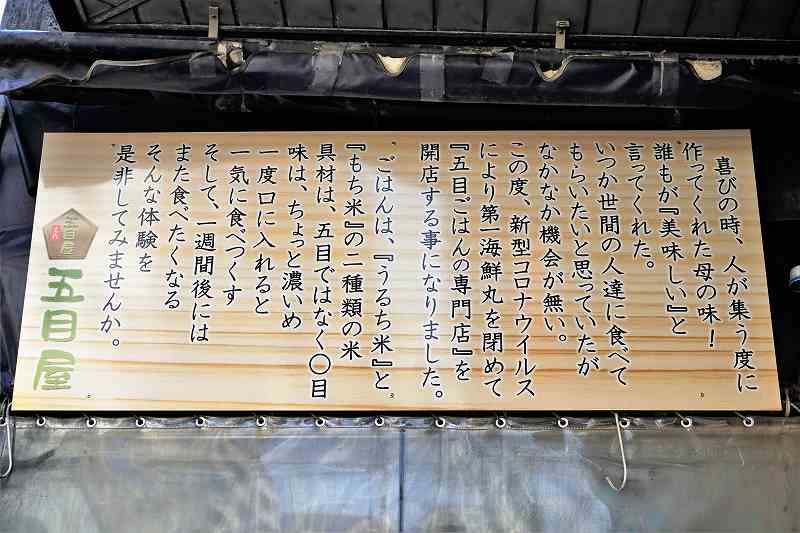 喜びの時、人が集う度に
作ってくれた母の味！
誰もが『美味しい』と
言ってくれた。
いつか世間の人達に食べて
もらいたいと思っていたが
なかなか機会が無い。
この度、新型コロナウイルス
により第一海鮮丸を閉めて
『五目ごはんの専門店』を
開店する事になりました。
ごはんは、『うるち米』と
『もち米』の二種類の米
具材は、五目ではなく〇目
味は、ちょっと濃いめ
一度口に入れると
一気に食べつくす
そして、一週間後には
また食べたくなる
そんな体験を
是非してみませんか。
五目屋
五目屋